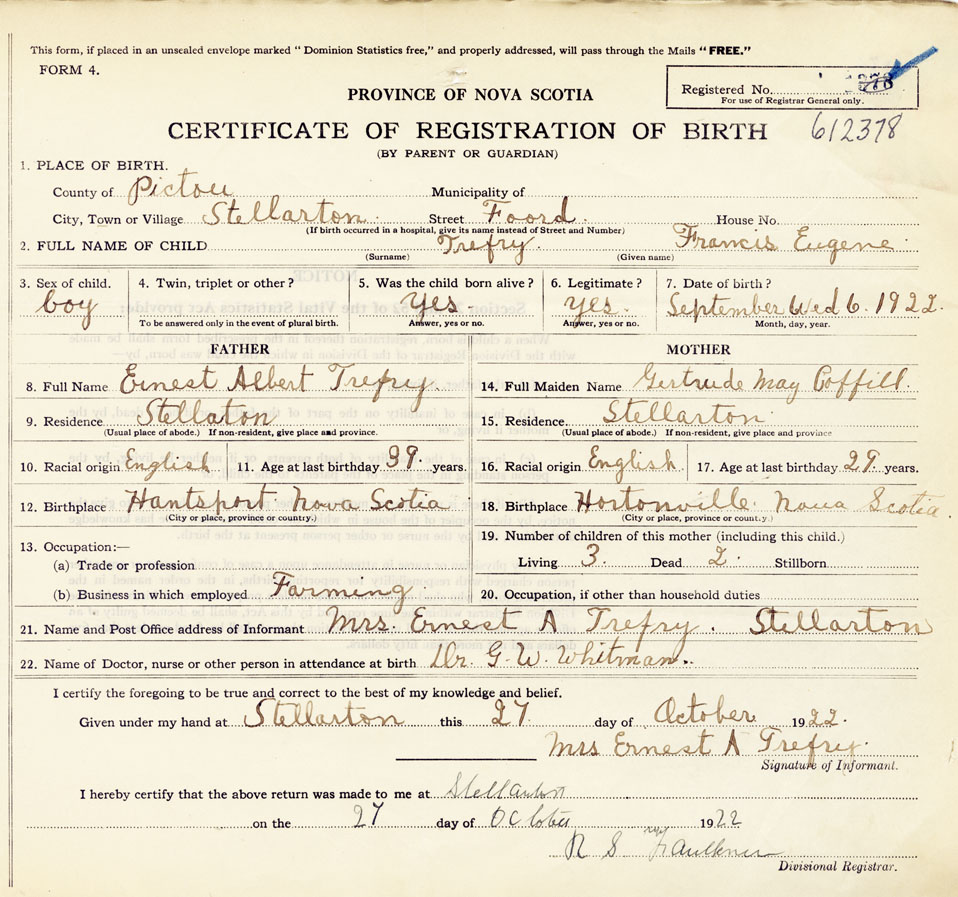 This form, if placed in an unsealed envelope marked "Dominion Statistics free," and properly addressed, will pass through the Mails "FREE."
FORM 4.
Registered No.
For use of Registrar General only.
PROVINCE OF NOVA SCOTIA
CERTIFICATE OF REGISTRATION OF BIRTH 612378
(BY PARENT OR GUARDIAN)
1. PLACE OF BIRTH.
County of Pictou Municipality of
City, Town or Village Stellarton Street Foord House No.
(If birth occurred in a hospital, give its name instead of Street and Number)
2. FULL NAME OF CHILD Trefry. Francis Eugene.
(Surname) (Given name)
3. Sex of child. 4. Twin, triplet or other? 5. Was the child born alive? 6. Legitimate? 7. Date of birth?
boy yes yes. September Wed 6. 1922.
To be answered only in the event of plural birth. Answer, yes or no. Answer, yes or no. Month, day, year.
FATHER MOTHER
8. Full Name Ernest Albert Trefry. 14. Full Maiden Name Gertrude May Coffill.
9. Residence Stellaton 15. Residence. Stellarton
(Usual place of abode.) If non-resident, give place and province. (Usual place of abode.) If non-resident, give place and province
10. Racial origin English 11. Age at last birthday 39 years. 16. Racial origin English. 17. Age at last birthday 29. years.
12. Birthplace Hantsport Nova Scotia 18. Birthplace Hortonville Nova Scotia.
(City or place, province or country.) (City or place, province or county.)
13. Occupation:— 19. Number of children of this mother (including this child.)
(a) Trade or profession Living 3. Dead 2. Stillborn
(b) Business in which employed Farming. 20. Occupation, if other than household duties
21. Name and Post Office address of Informant Mrs. Ernest A Trefry. Stellarton
22. Name of Doctor, nurse or other person in attendance at birth Dr. G. W. Whitman.
I certify the foregoing to be true and correct to the best of my knowledge and belief.
Given under my hand at Stellarton this 27 day of October 1922.
Mrs Ernest A Trefry.
Signature of Informant.
I hereby certify that the above return was made to me at Stellarton
on the 27 day of October 1922
R S Faulkner
Divisional Registrar.